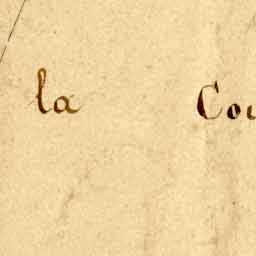 la Cou